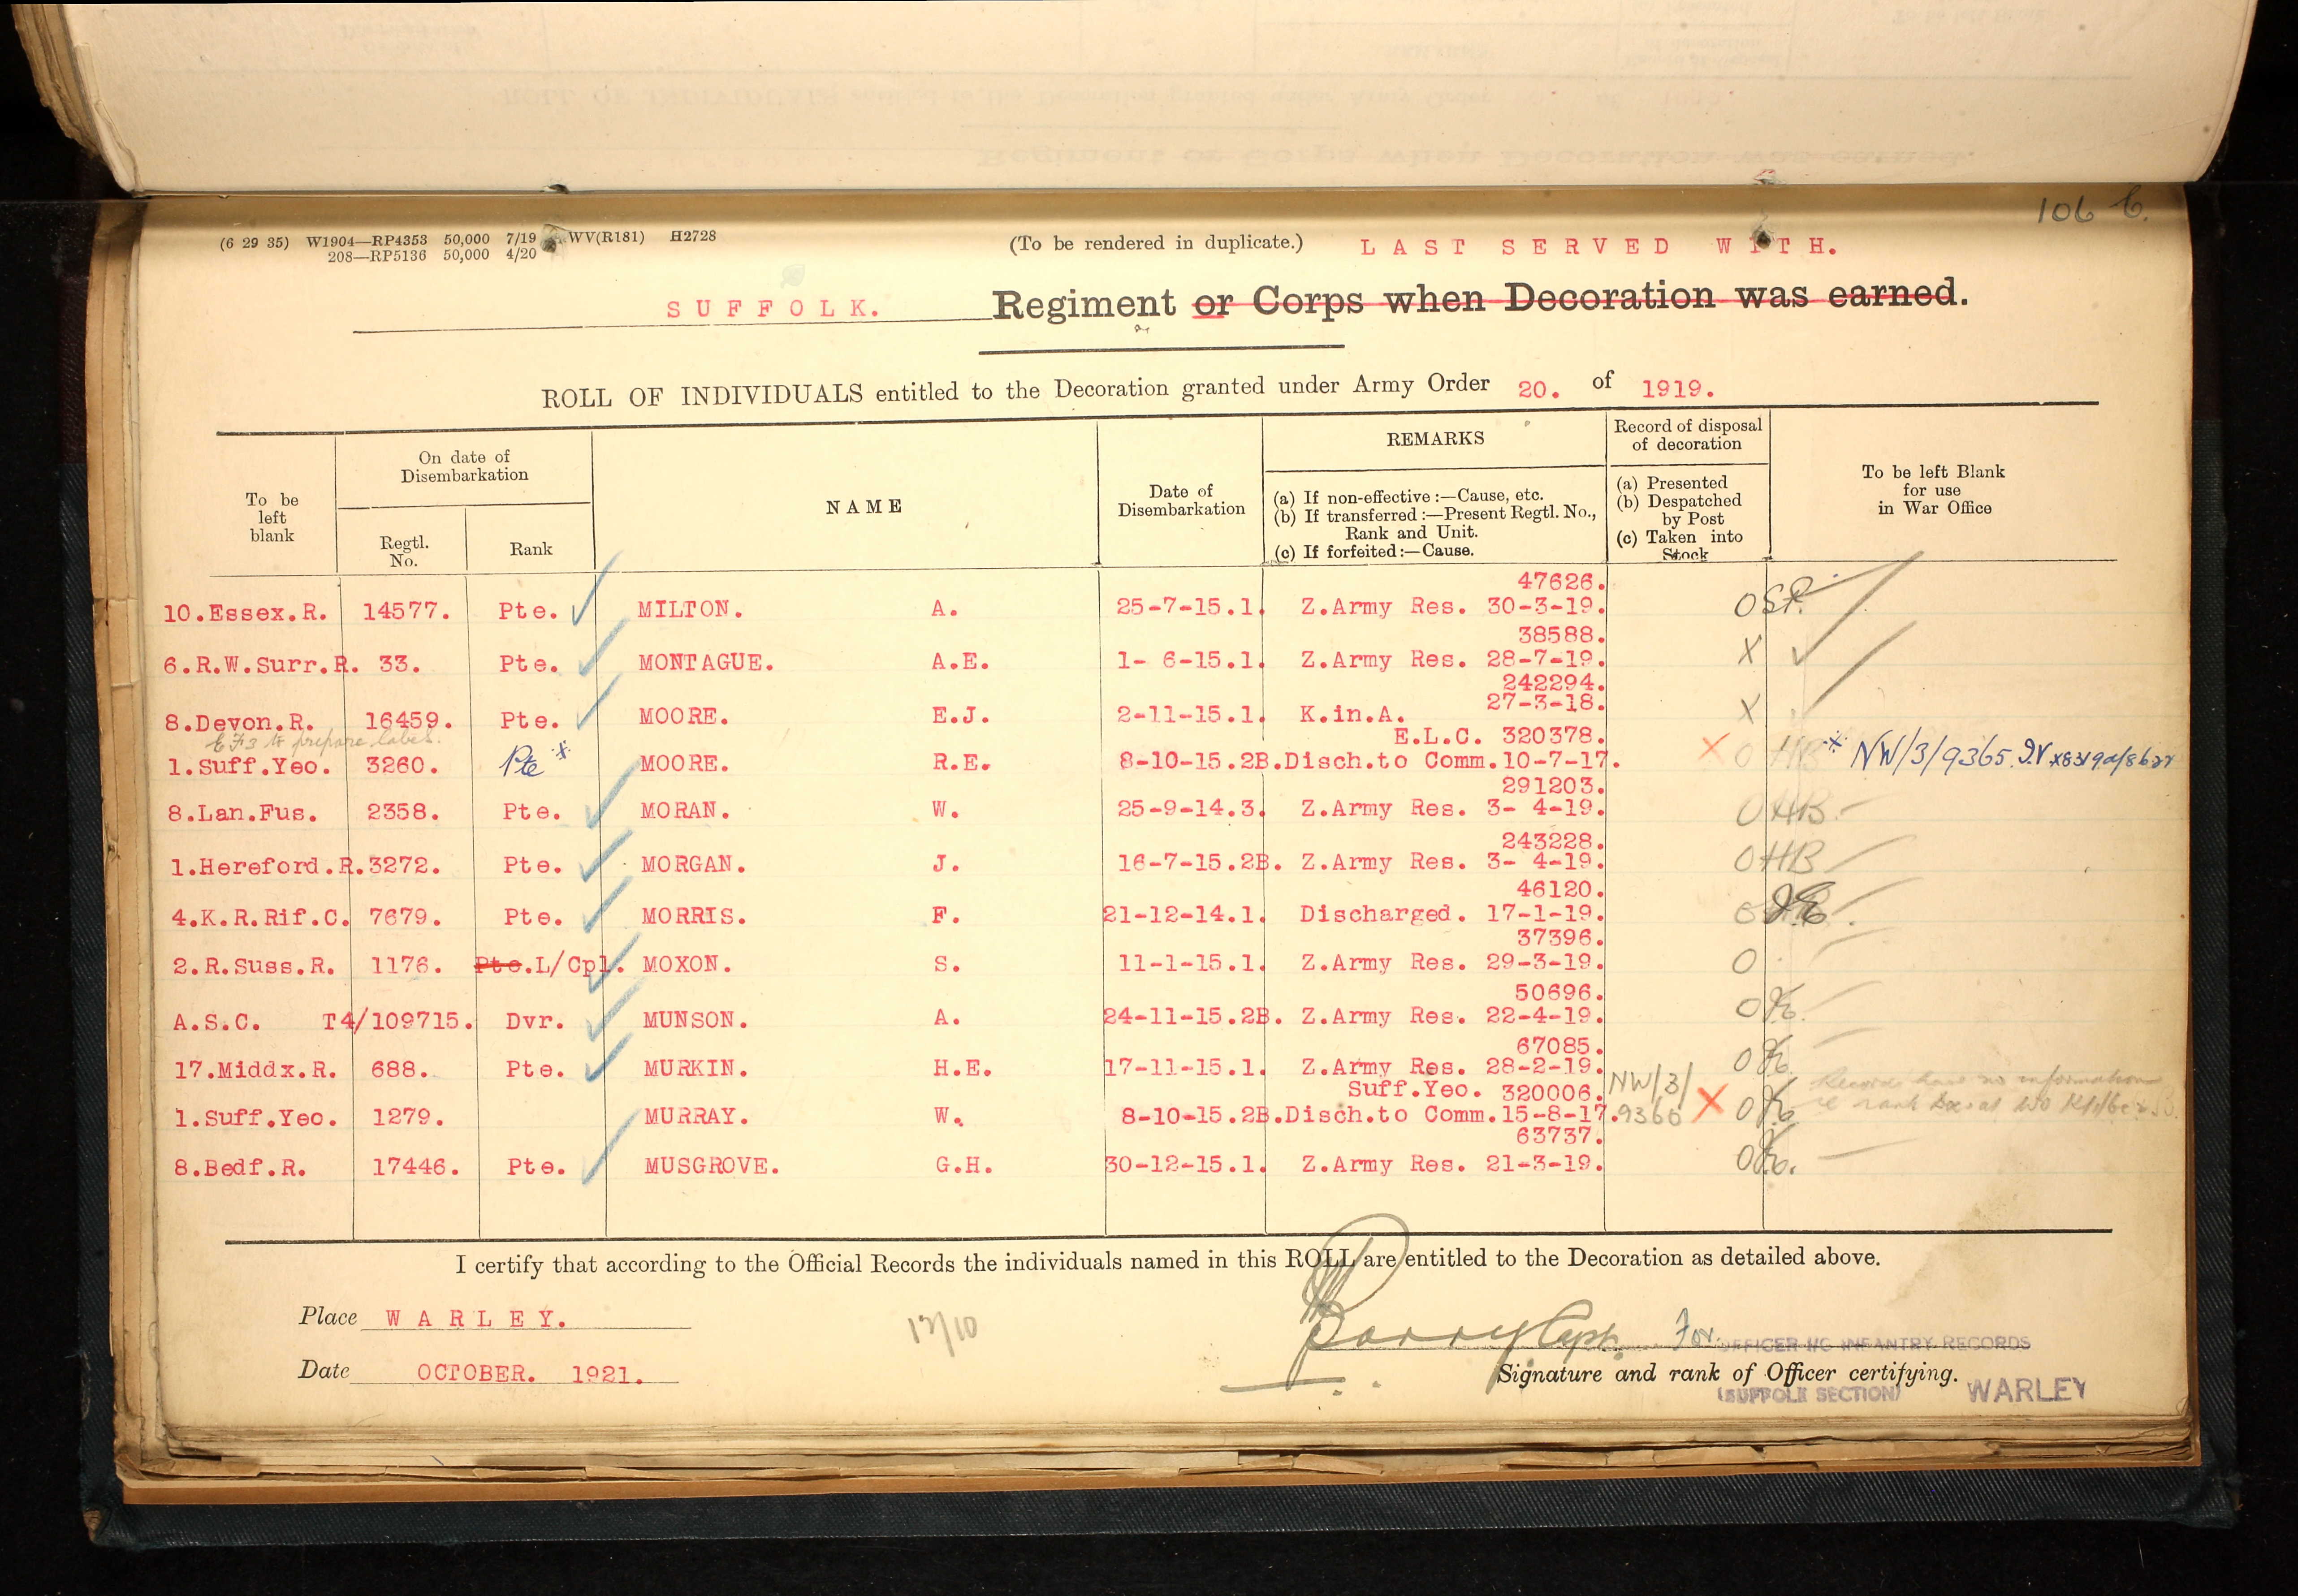 106 C.
(6 29 35) W1904—RP4353 50,000 7/19 WV(R181) H2728
208—RP5136 50,000 4/20
(To be rendered in duplicate.) LAST SERVED WITH.
SUFFOLK. Regiment or Corps when Decoration was earned.
ROLL OF INDIVIDUALS entitled to the Decoration granted under Army Order 20. of 1919.
To be left blank
On date of Disembarkation
Regtl. No.
Rank
NAME
Date of Disembarkation
REMARKS
(a) If non-effective :—Cause, etc.
(b) If transferred :—Present Regtl. No., Rank and Unit.
(c) If forfeited :—Cause.
Record of disposal of decoration
(a) Presented
(b) Despatched by Post
(c) Taken into Stock
To be left Blank for use in War Office
47626.
10.Essex.R. 14577. Pte. MILTON. A. 25-7-15.1. Z.Army Res. 30-3-19.
38588.
6.R.W.Surr.R. 33. Pte. MONTAGUE. A.E. 1- 6-15.1. Z.Army Res. 28-7-19. X
242294.
8.Devon.R. 16459. Pte. MOORE. E.J. 2-11-15.1. K.in.A. 27-3-18. X
to prepare label.
E.L.C. 320378.
1.Suff.Yeo. 3260. Pte * MOORE. R.E. 8-10-15.2B.Disch.to Comm.10-7-17. X O HB * NW/3/9365
291203.
8.Lan.Fus. 2358. Pte. MORAN. W. 25-9-14.3. Z.Army Res. 3- 4-19. O HB.
243228.
1.Hereford.R.3272. Pte. MORGAN. J. 16-7-15.2B. Z.Army Res. 3- 4-19. O HB
46120.
4.K.R.Rif.C. 7679. Pte. MORRIS. F. 21-12-14.1. Discharged. 17-1-19.
37396.
2.R.Suss.R. 1176. Pte.L/Cpl. MOXON. S. 11-1-15.1. Z.Army Res. 29-3-19. O
50696.
A.S.C. T4/109715. Dvr. MUNSON. A. 24-11-15.2B. Z.Army Res. 22-4-19. O
67085.
17.Middx.R. 688. Pte. MURKIN. H.E. 17-11-15.1. Z.Army Res. 28-2-19. O
Suff.Yeo. 320006. NW/3/
1.Suff.Yeo. 1279. MURRAY. W. 8-10-15.2B.Disch.to Comm.15-8-17. 9360 X O
Records have no information
63737.
8.Bedf.R. 17446. Pte. MUSGROVE. G.H. 30-12-15.1. Z.Army Res. 21-3-19. O
I certify that according to the Official Records the individuals named in this ROLL are entitled to the Decoration as detailed above.
Place WARLEY.
Date OCTOBER. 1921.
Barry Capt. For OFFICER I/C INFANTRY RECORDS
Signature and rank of Officer certifying.
(SUFFOLK SECTION) WARLEY